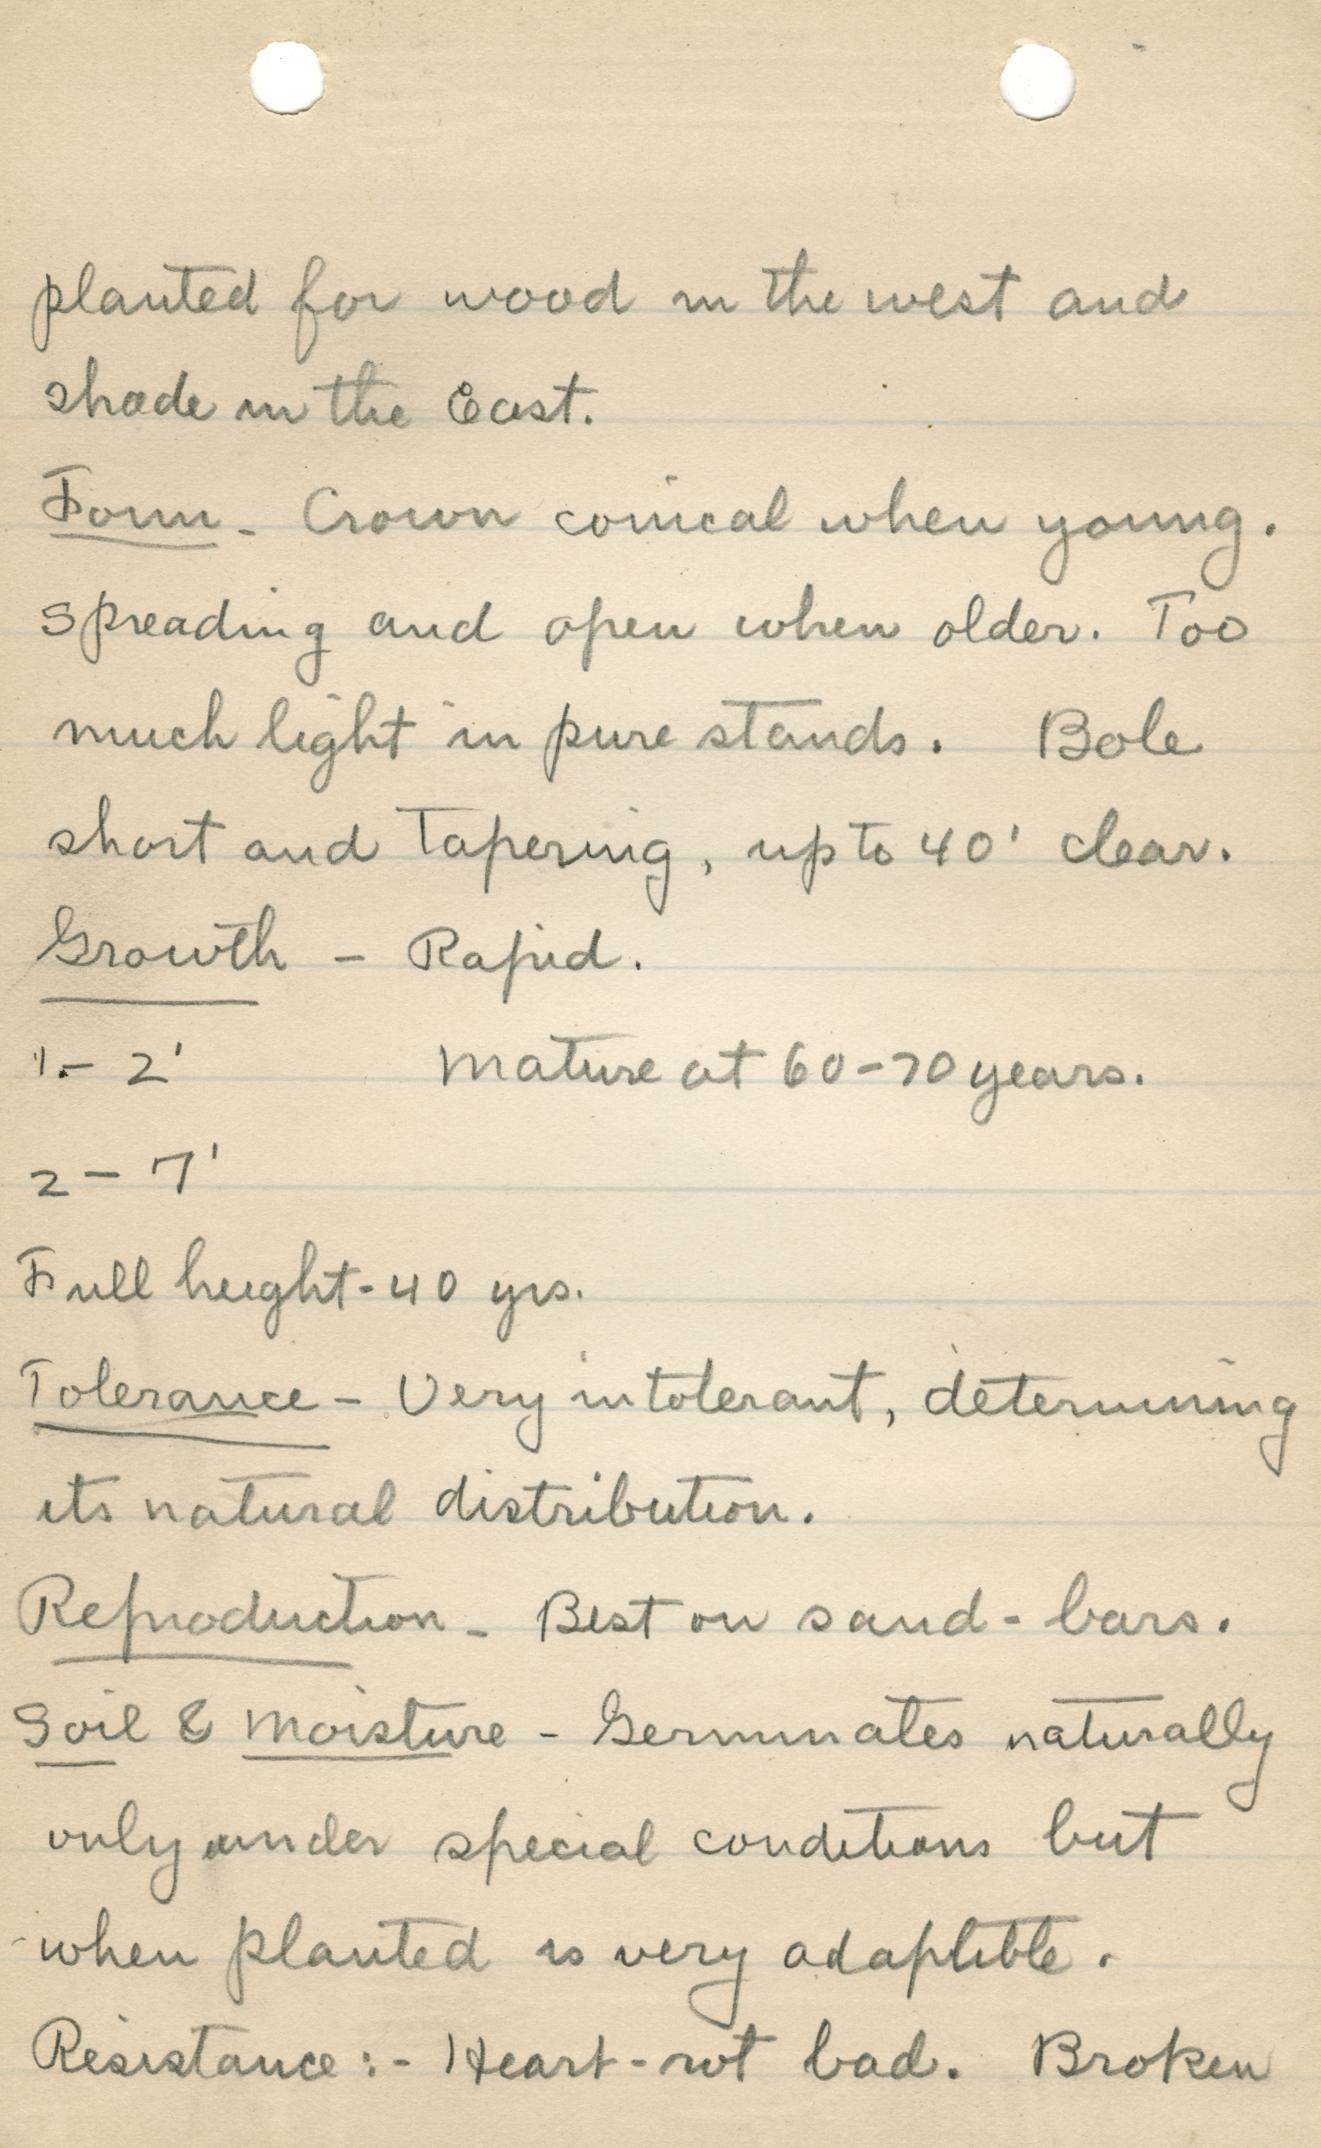 planted for wood in the west and
shade in the East.
Form - Crown conical when young.
spreading and open when older. Too
much light in pure stands. Bole
short and tapering, up to 40' clear.
Growth - Rapid.
1 - 2' Mature at 60-70 years.
2 - 7'
Full height - 40 yrs.
Tolerance - Very intolerant, determining
its natural distribution.
Reproduction - Best on sand-bars.
Soil & Moisture - Germinates naturally
only under special conditions but
when planted is very adaptible.
Resistance :- Heart-rot bad. Broken